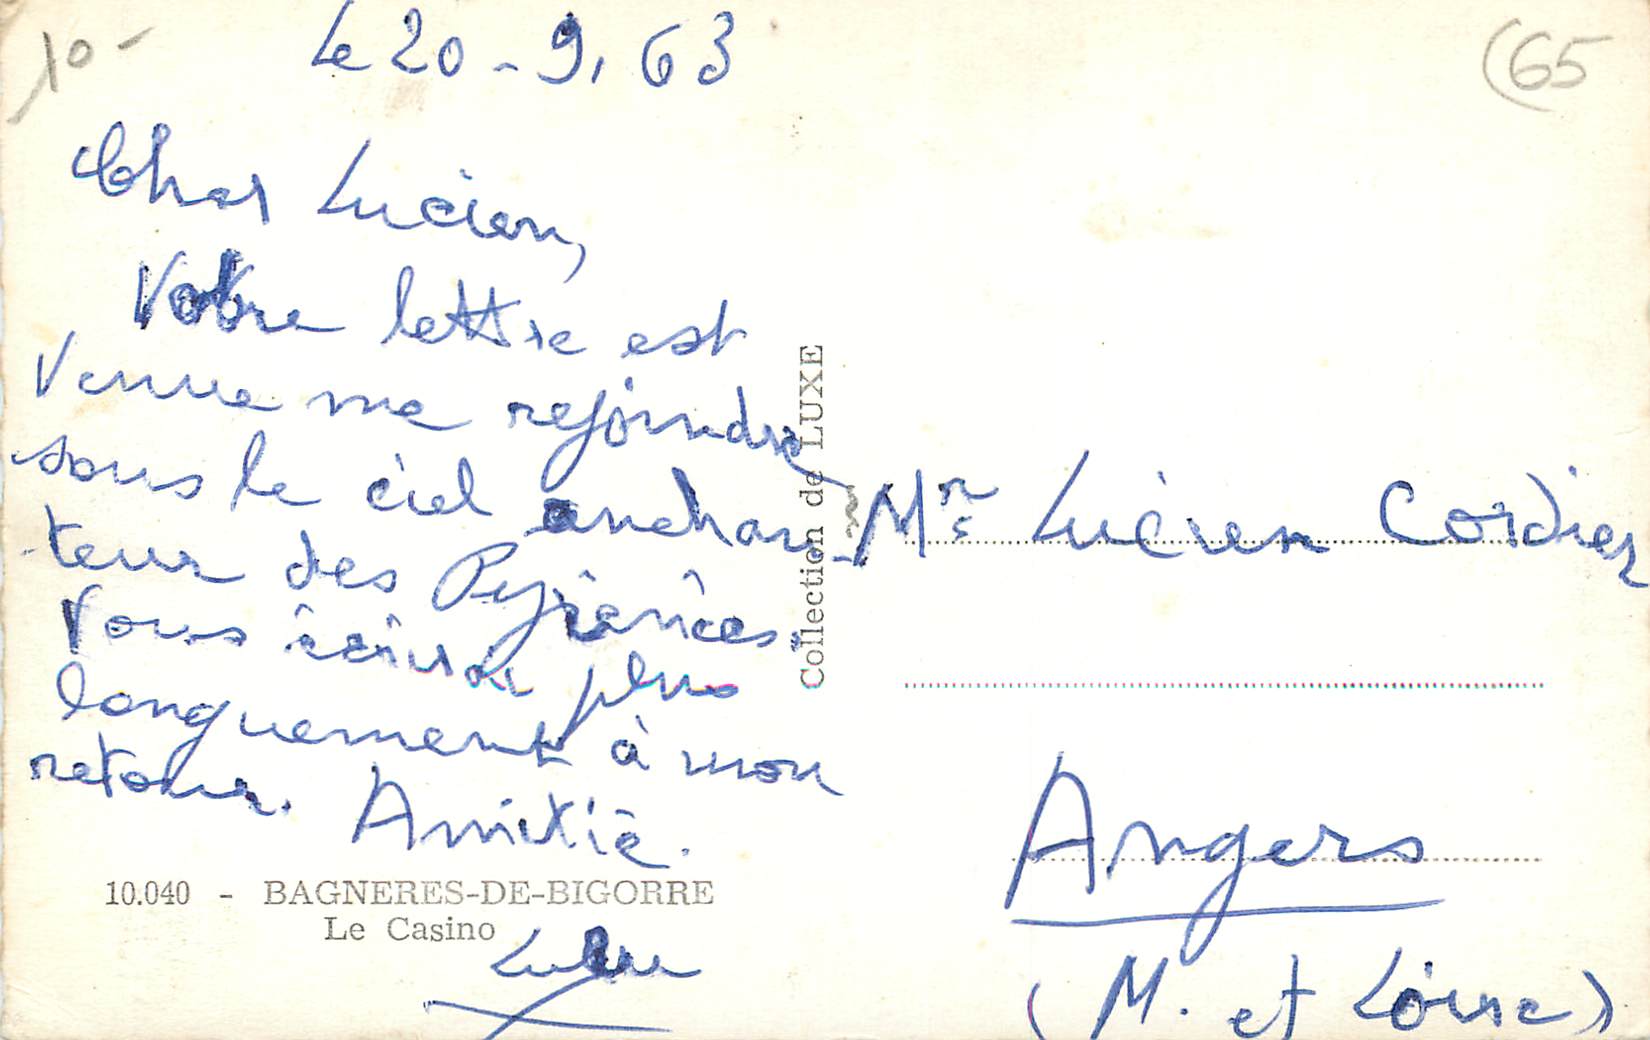 10-
Le 20-9.63
(65
Cher Lucien,
Votre lettre est
venue me rejoindre
sous le ciel enchan-
teur des Pyrénées.
Vous écrirai plus
longuement à mon
retour. Amitié.
10.040 - BAGNERES-DE-BIGORRE
Le Casino
Collection de LUXE
Mr Lucien Cordier
Angers
(M. et Loire)